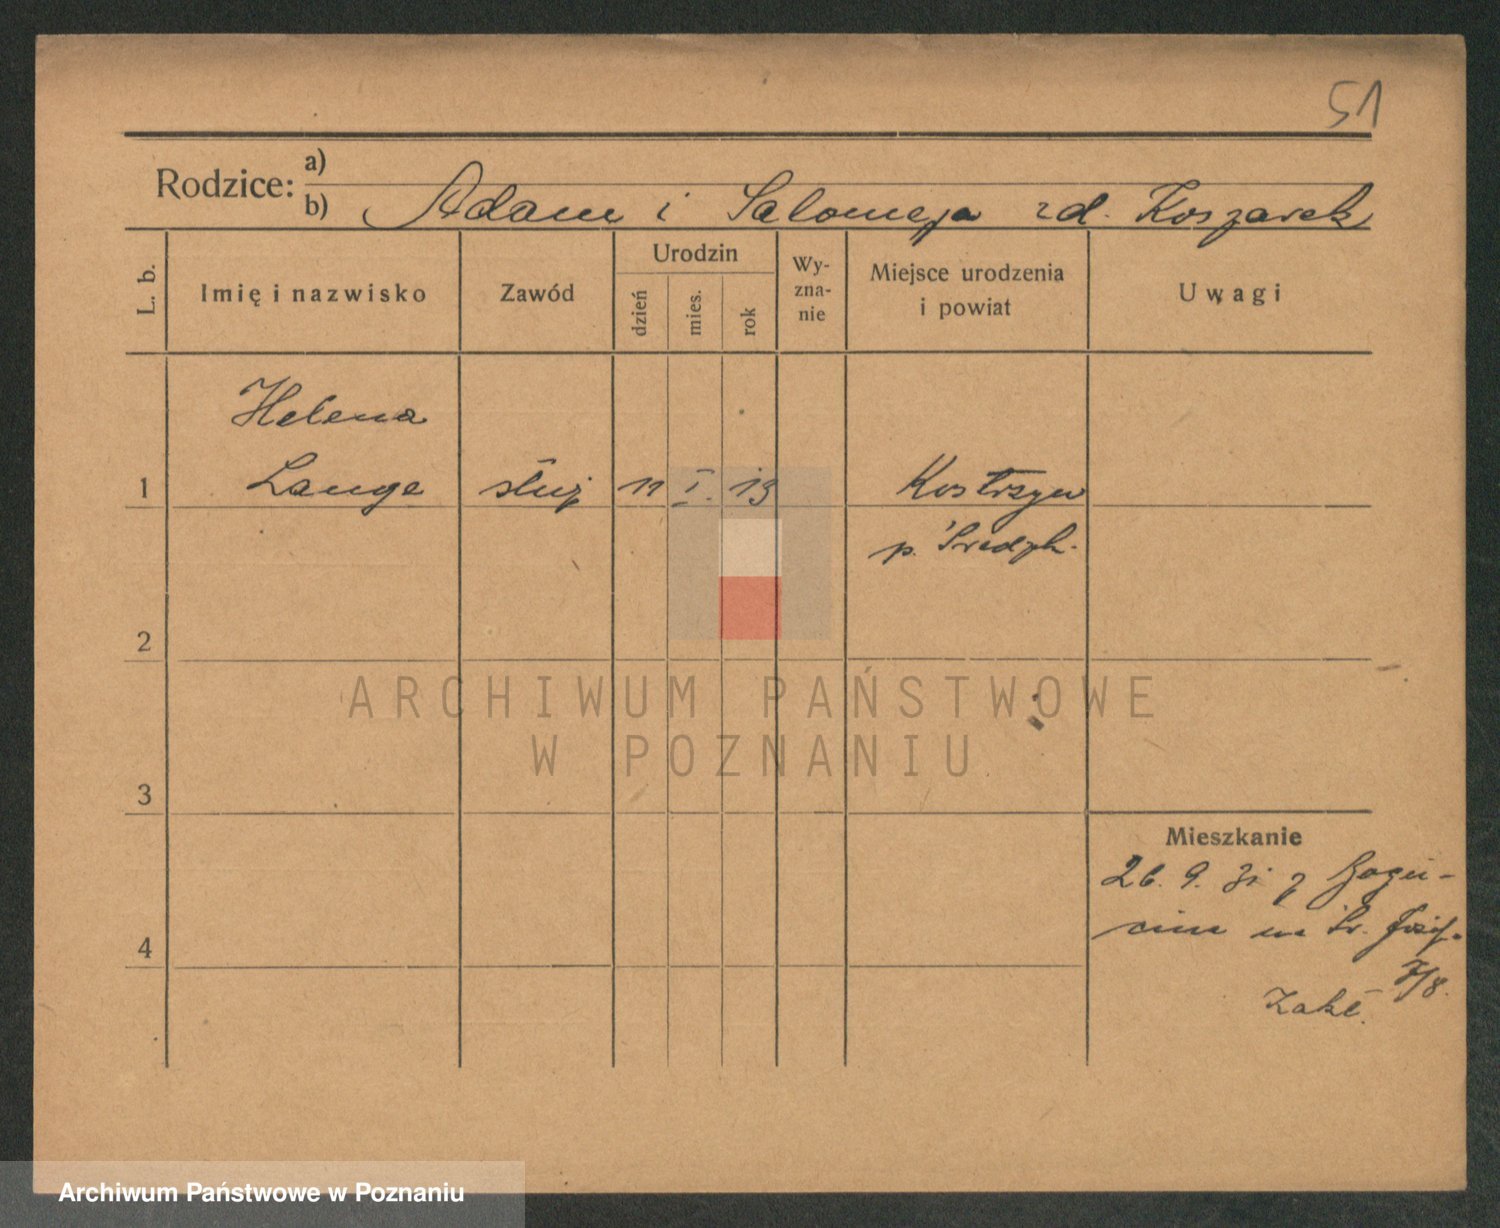 51
Rodzice: a)
b) Adam i Salomeja zd. Koszarek
L. b.
Imię i nazwisko
Zawód
Urodzin
dzień
mies.
rok
Wy-
zna-
nie
Miejsce urodzenia
i powiat
Uwagi
Helena
1 Lange służ 11 I. 13 Kostrzyn
p.
2
3
4
Mieszkanie
26. 9. 31 z Bogu-
cina na Św. Józef.
7/8.
Zakł.
ARCHIWUM PAŃSTWOWE
W POZNANIU
Archiwum Państwowe w Poznaniu